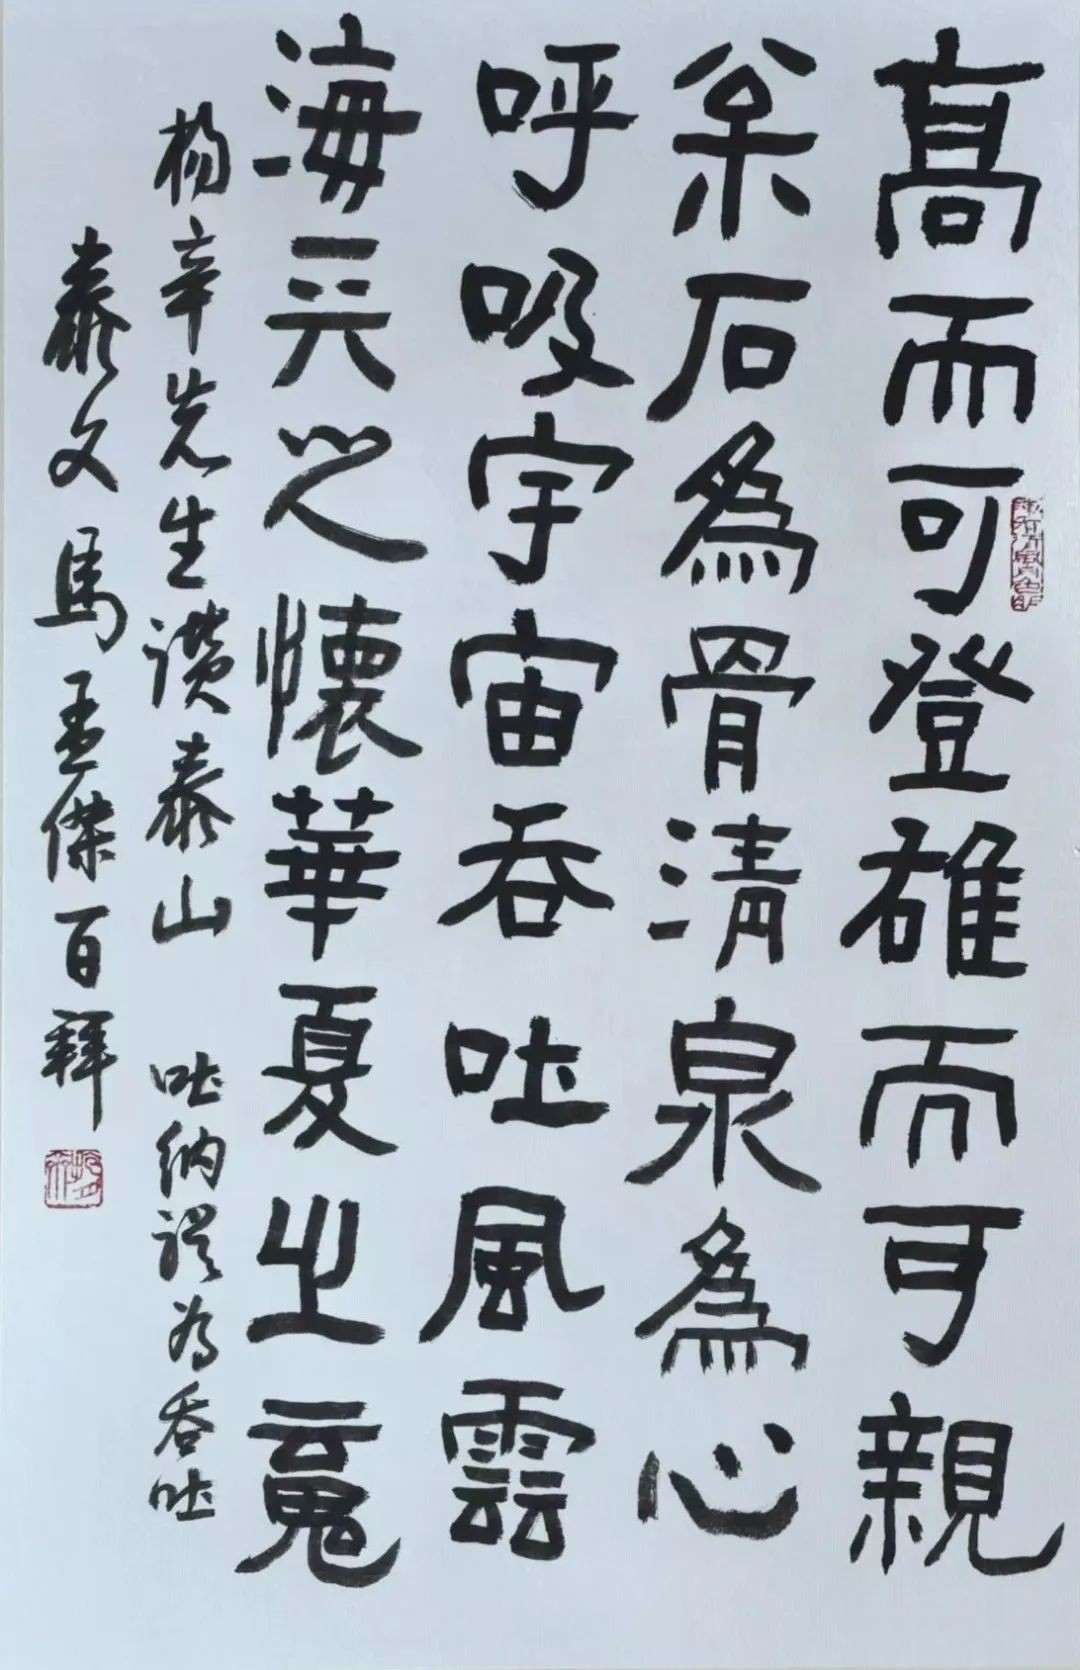 高而可登雄而可親
枀石為骨清泉為心
呼吸宇宙吞吐風雲
海天之懷華夏之魂
楊辛先生讚泰山 吐納誤为吞吐
泰文馬孟傑百拜